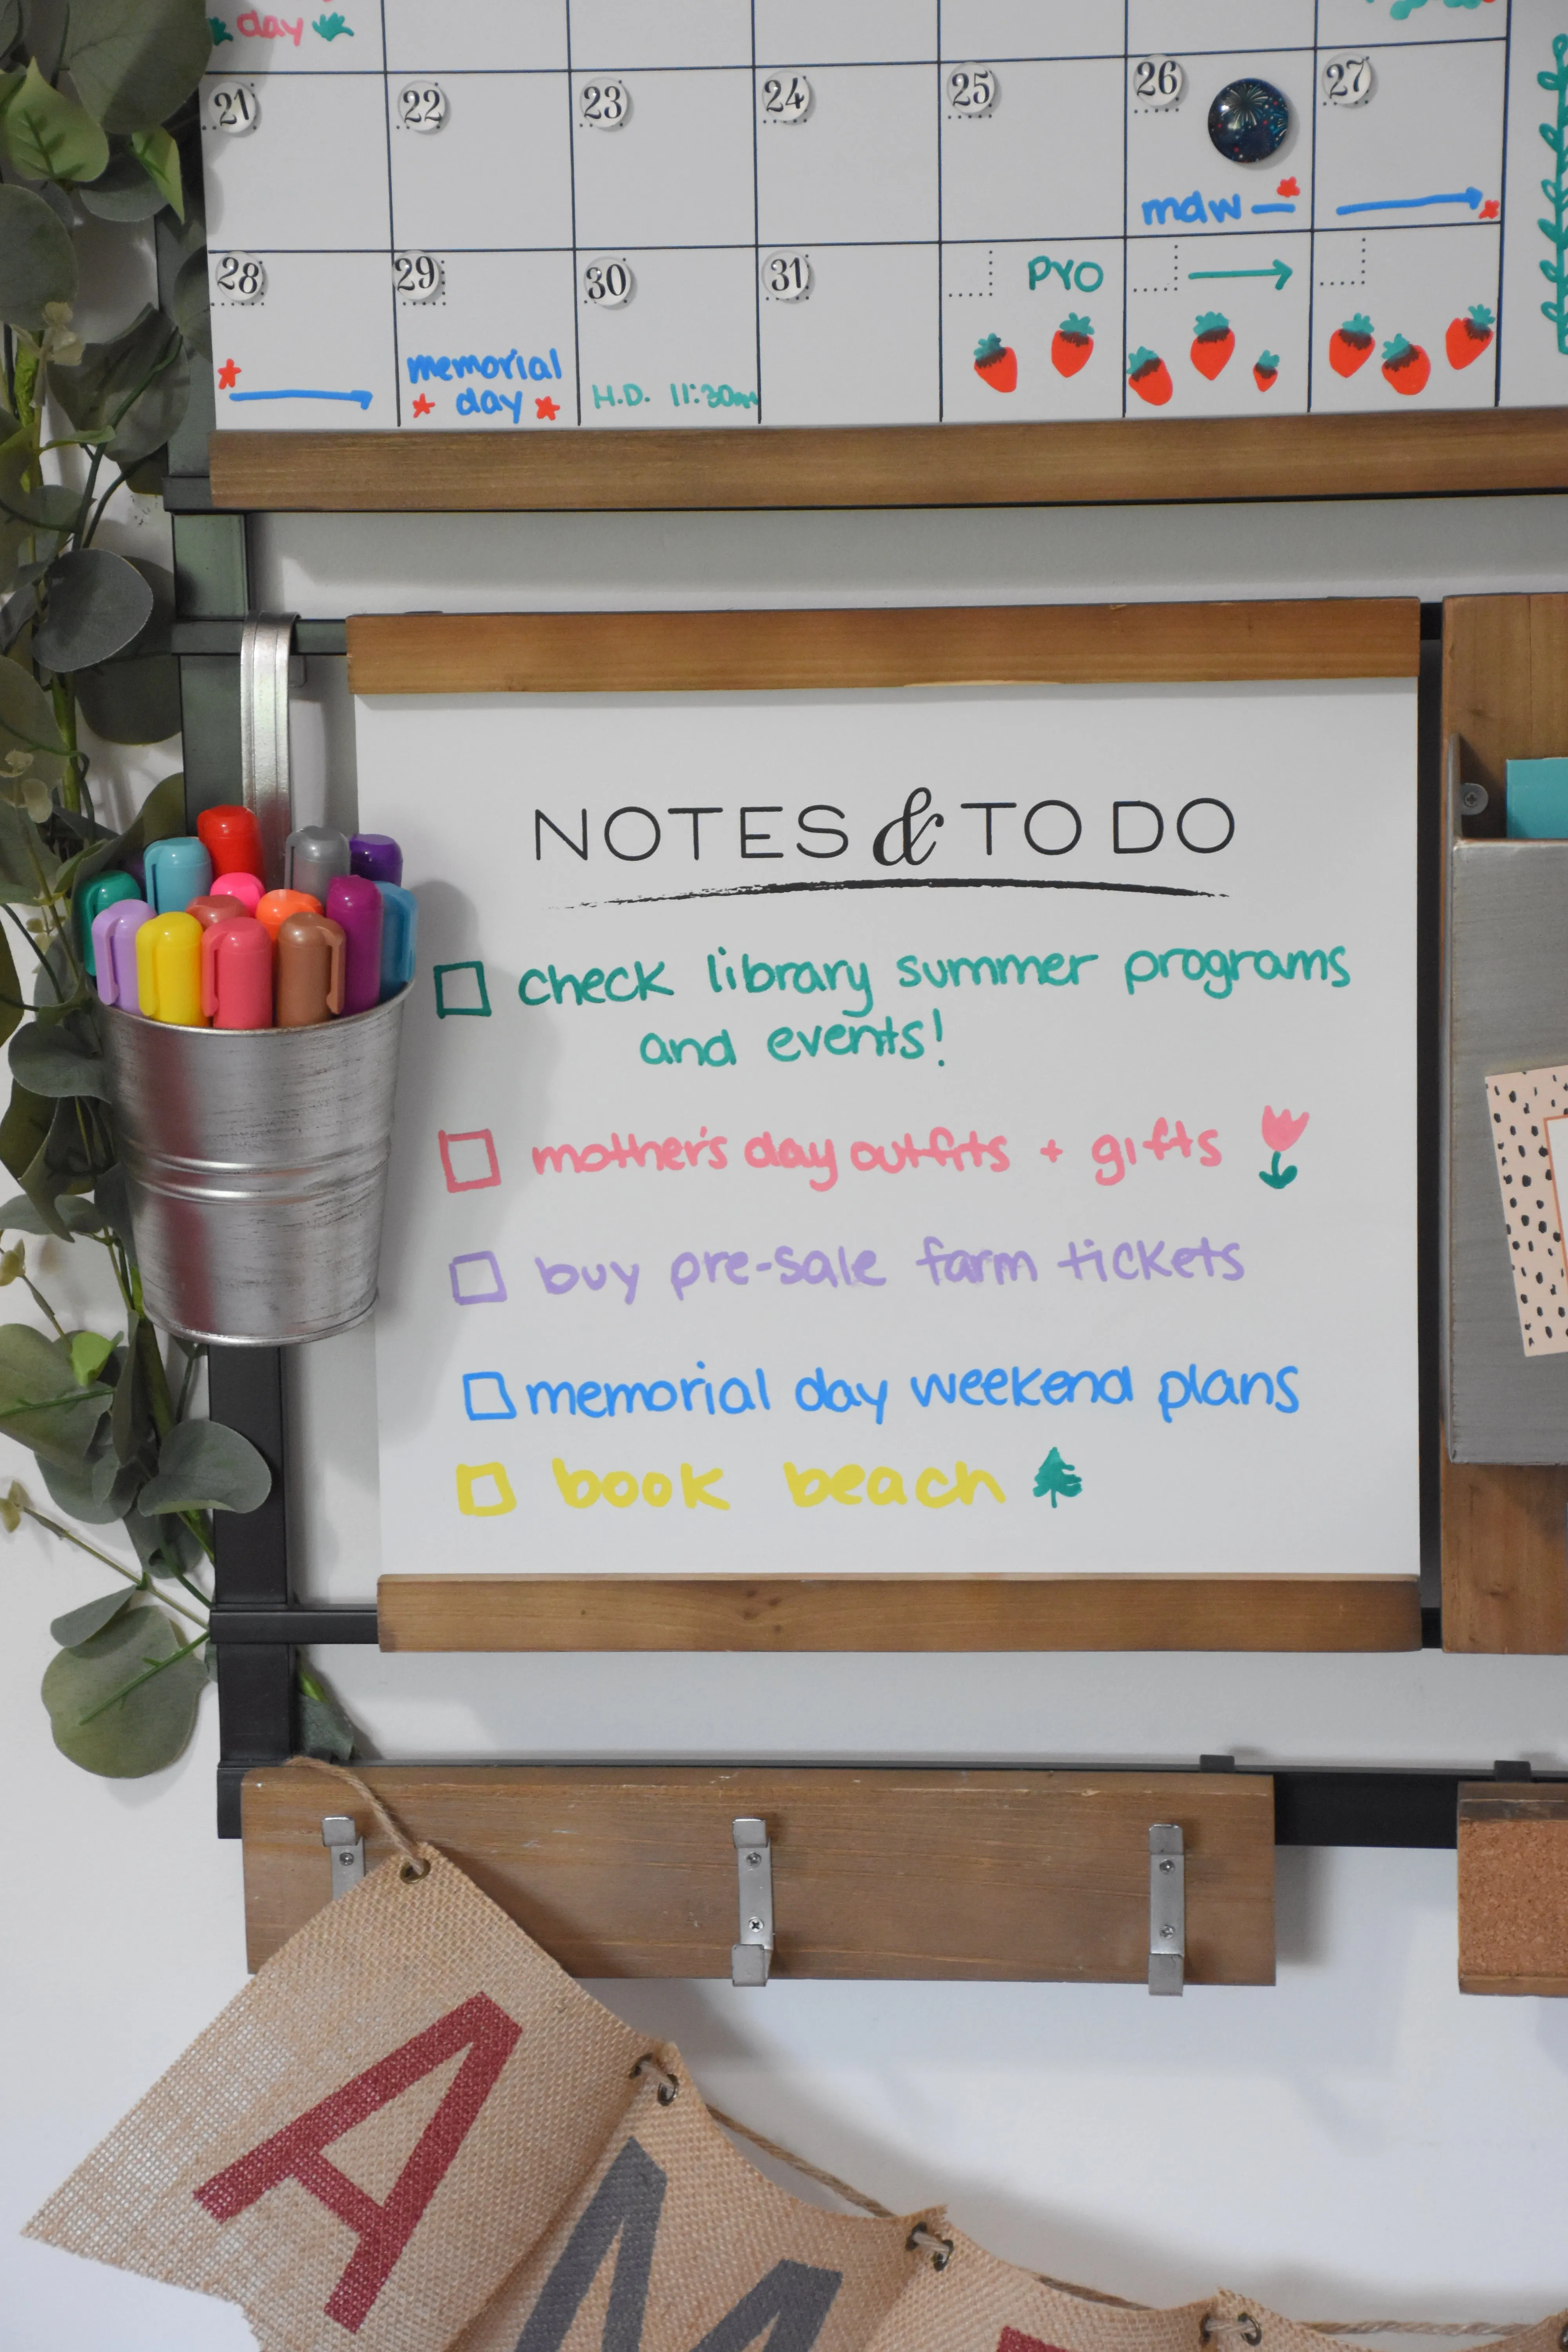 day
21 22 23 24 25 26 27
mdw
28 29 30 31 PYO
memorial
day
H.D. 11:30am
NOTES & TO DO
check library summer programs
and events!
mother's day outfits + gifts
buy pre-sale farm tickets
memorial day weekend plans
book beach
A
M